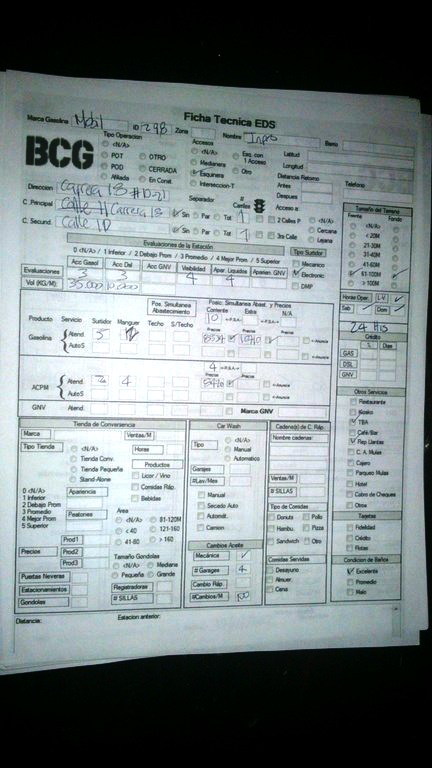 Ficha Tecnica EDS
Marca Gasolina Mobil ID 298 Zona Nombre Barrio
BCG
Tipo Operacion
<N/A>
POT OTRO
POD CERRADA
Afiliada En Const.
Accesos
<N/A>
Medianera
Esquinera
Interseccion-T
Esq. con 1 Acceso
Otro
Latitud
Longitud
Distancia Retorno
Antes
Despues
Telefono
Direccion Carrera 18 #10-21
C. Principal Calle 11 Carrera 18
C. Secund. Calle 10
Separador
Sin Par Tot 1
Sin Par Tot 1
# Carriles
Acceso a:
2 Calles P
3ra Calle
<N/A>
Cercana
Lejana
Tamaño del Terreno
Frente Fondo
<N/A>
< 20M
21-30M
31-40M
41-60M
61-100M
> 100M
Evaluaciones de la Estación
0 <N/A> 1 Inferior / 2 Debajo Prom / 3 Promedio / 4 Mejor Prom / 5 Superior
Acc Gasol Acc Dsl Acc GNV Visibilidad Apar. Liquidos Aparian. GNV
Evaluaciones 3 3 4 4
Vol (KG/M): 35.000
Tipo Surtidor
Mecanico
Electronic
DMP
Horas Oper. L-V
Sab Dom
24 Hrs
Pos. Simultanea Abastecimiento
Posic. Simultanea Abast. y Precios
Producto Servicio Surtidor Manguer Techo S/Techo
Corriente Extra N/A
10
Gasolina Atend 5
AutoS
ACPM Atend 4
AutoS
4
GNV Atend
Marca GNV
Crédito
S. Dias
GAS
DSL
GNV
Otros Servicios
Restaurante
Kiosko
TBA
Café/Bar
Rep Llantas
C. A. Mulas
Cajero
Parqueo Mulas
Hotel
Cobro de Cheques
Otros
Tarjetas
Fidelidad
Crédito
Flotas
Condicion de Baños
Excelente
Promedio
Malo
Tienda de Conversencia
Marca Ventas/M
Tipo Tienda
<N/A>
Tienda Conv.
Tienda Pequeña
Stand-Alone
Horas
Productos
Licor / Vino
Comidas Ráp.
Bebidas
0 <N/A>
1 Inferior
2 Debajo Prom
3 Promedio
4 Mejor Prom
5 Superior
Apariencia
Peatones
Area
<N/A> 81-120M
< 40 121-160
41-80 > 160
Precios
Prod1
Prod2
Prod3
Tamaño Gondolas
<N/A> Mediana
Pequeña Grande
Puertas Neveras
Estacionamientos
Gondolas
Registradoras
# SILLAS
Car Wash
Tipo
<N/A>
Manual
Automatico
Garajes
#Lav/Mes
Manual
Secado Auto
Automát.
Camion
Cambios Aceite
Mecánica
# Garages 4
Cambio Ráp.
#Cambios/M 100
Cadena(s) de C. Ráp.
Nombre cadenas:
Ventas/M
# SILLAS
Tipo de Comidas
Donuts Pollo
Hambu. Pizza
Sandwich Otro
Comidas Servidas
Desayuno
Almuer.
Cena
Distancia: Estacion anterior: